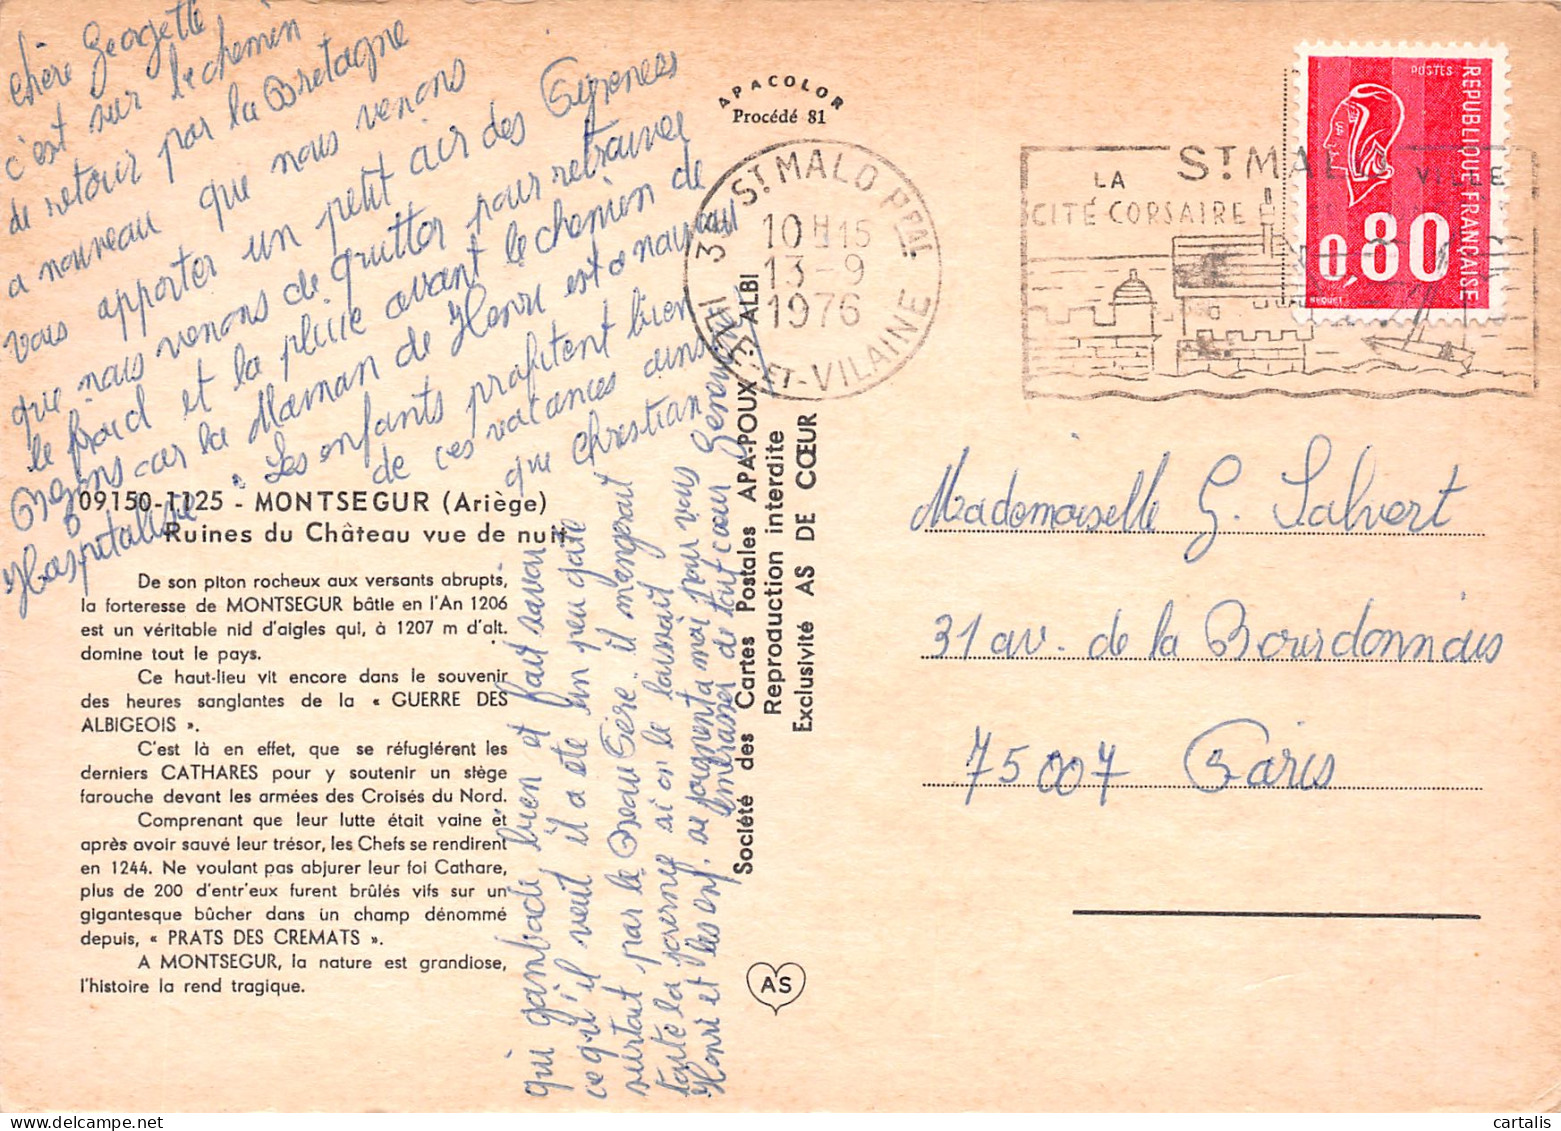 Chère Georgette
c'est sur le chemin
de retour par la Bretagne
a nouveau que nous venons
vous apporter un petit air des Pyrenees
que nous venons de quitter pour retrouver
le froid et la pluie avant le chemin de
car la Maman de Henri est a nouveau
Hospitalisée. Les enfants profitent bien
de ces vacances ainsi
que Christian
qui gambade bien et fait savoir
ce qu'il veut il a été un peu gaté
surtout par le Beau Père. il mangerait
toute la journée si on le laissait
Henri et les enf. se joignent a moi pour vous
embrasser de tout cœur Geneviève
09150-1125 - MONTSEGUR (Ariège)
Ruines du Château vue de nuit
De son piton rocheux aux versants abrupts,
la forteresse de MONTSEGUR bâtie en l'An 1206
est un véritable nid d'aigles qui, à 1207 m d'alt.
domine tout le pays.
Ce haut-lieu vit encore dans le souvenir
des heures sanglantes de la « GUERRE DES
ALBIGEOIS ».
C'est là en effet, que se réfugièrent les
derniers CATHARES pour y soutenir un siège
farouche devant les armées des Croisés du Nord.
Comprenant que leur lutte était vaine et
après avoir sauvé leur trésor, les Chefs se rendirent
en 1244. Ne voulant pas abjurer leur foi Cathare,
plus de 200 d'entr'eux furent brûlés vifs sur un
gigantesque bûcher dans un champ dénommé
depuis, « PRATS DES CREMATS ».
A MONTSEGUR, la nature est grandiose,
l'histoire la rend tragique.
APACOLOR
Procédé 81
Société des Cartes Postales APA-POUX - ALBI
Reproduction interdite
Exclusivité AS DE CŒUR
AS
35 ST MALO PPAL
10H15
13-9
1976
ILLE-ET-VILAINE
ST MALO
LA VILLE
CITÉ CORSAIRE
POSTES
REPUBLIQUE FRANÇAISE
0,80
BEQUET
Mademoiselle G. Salvert
31 av. de la Bourdonnais
75007 Paris
cartalis